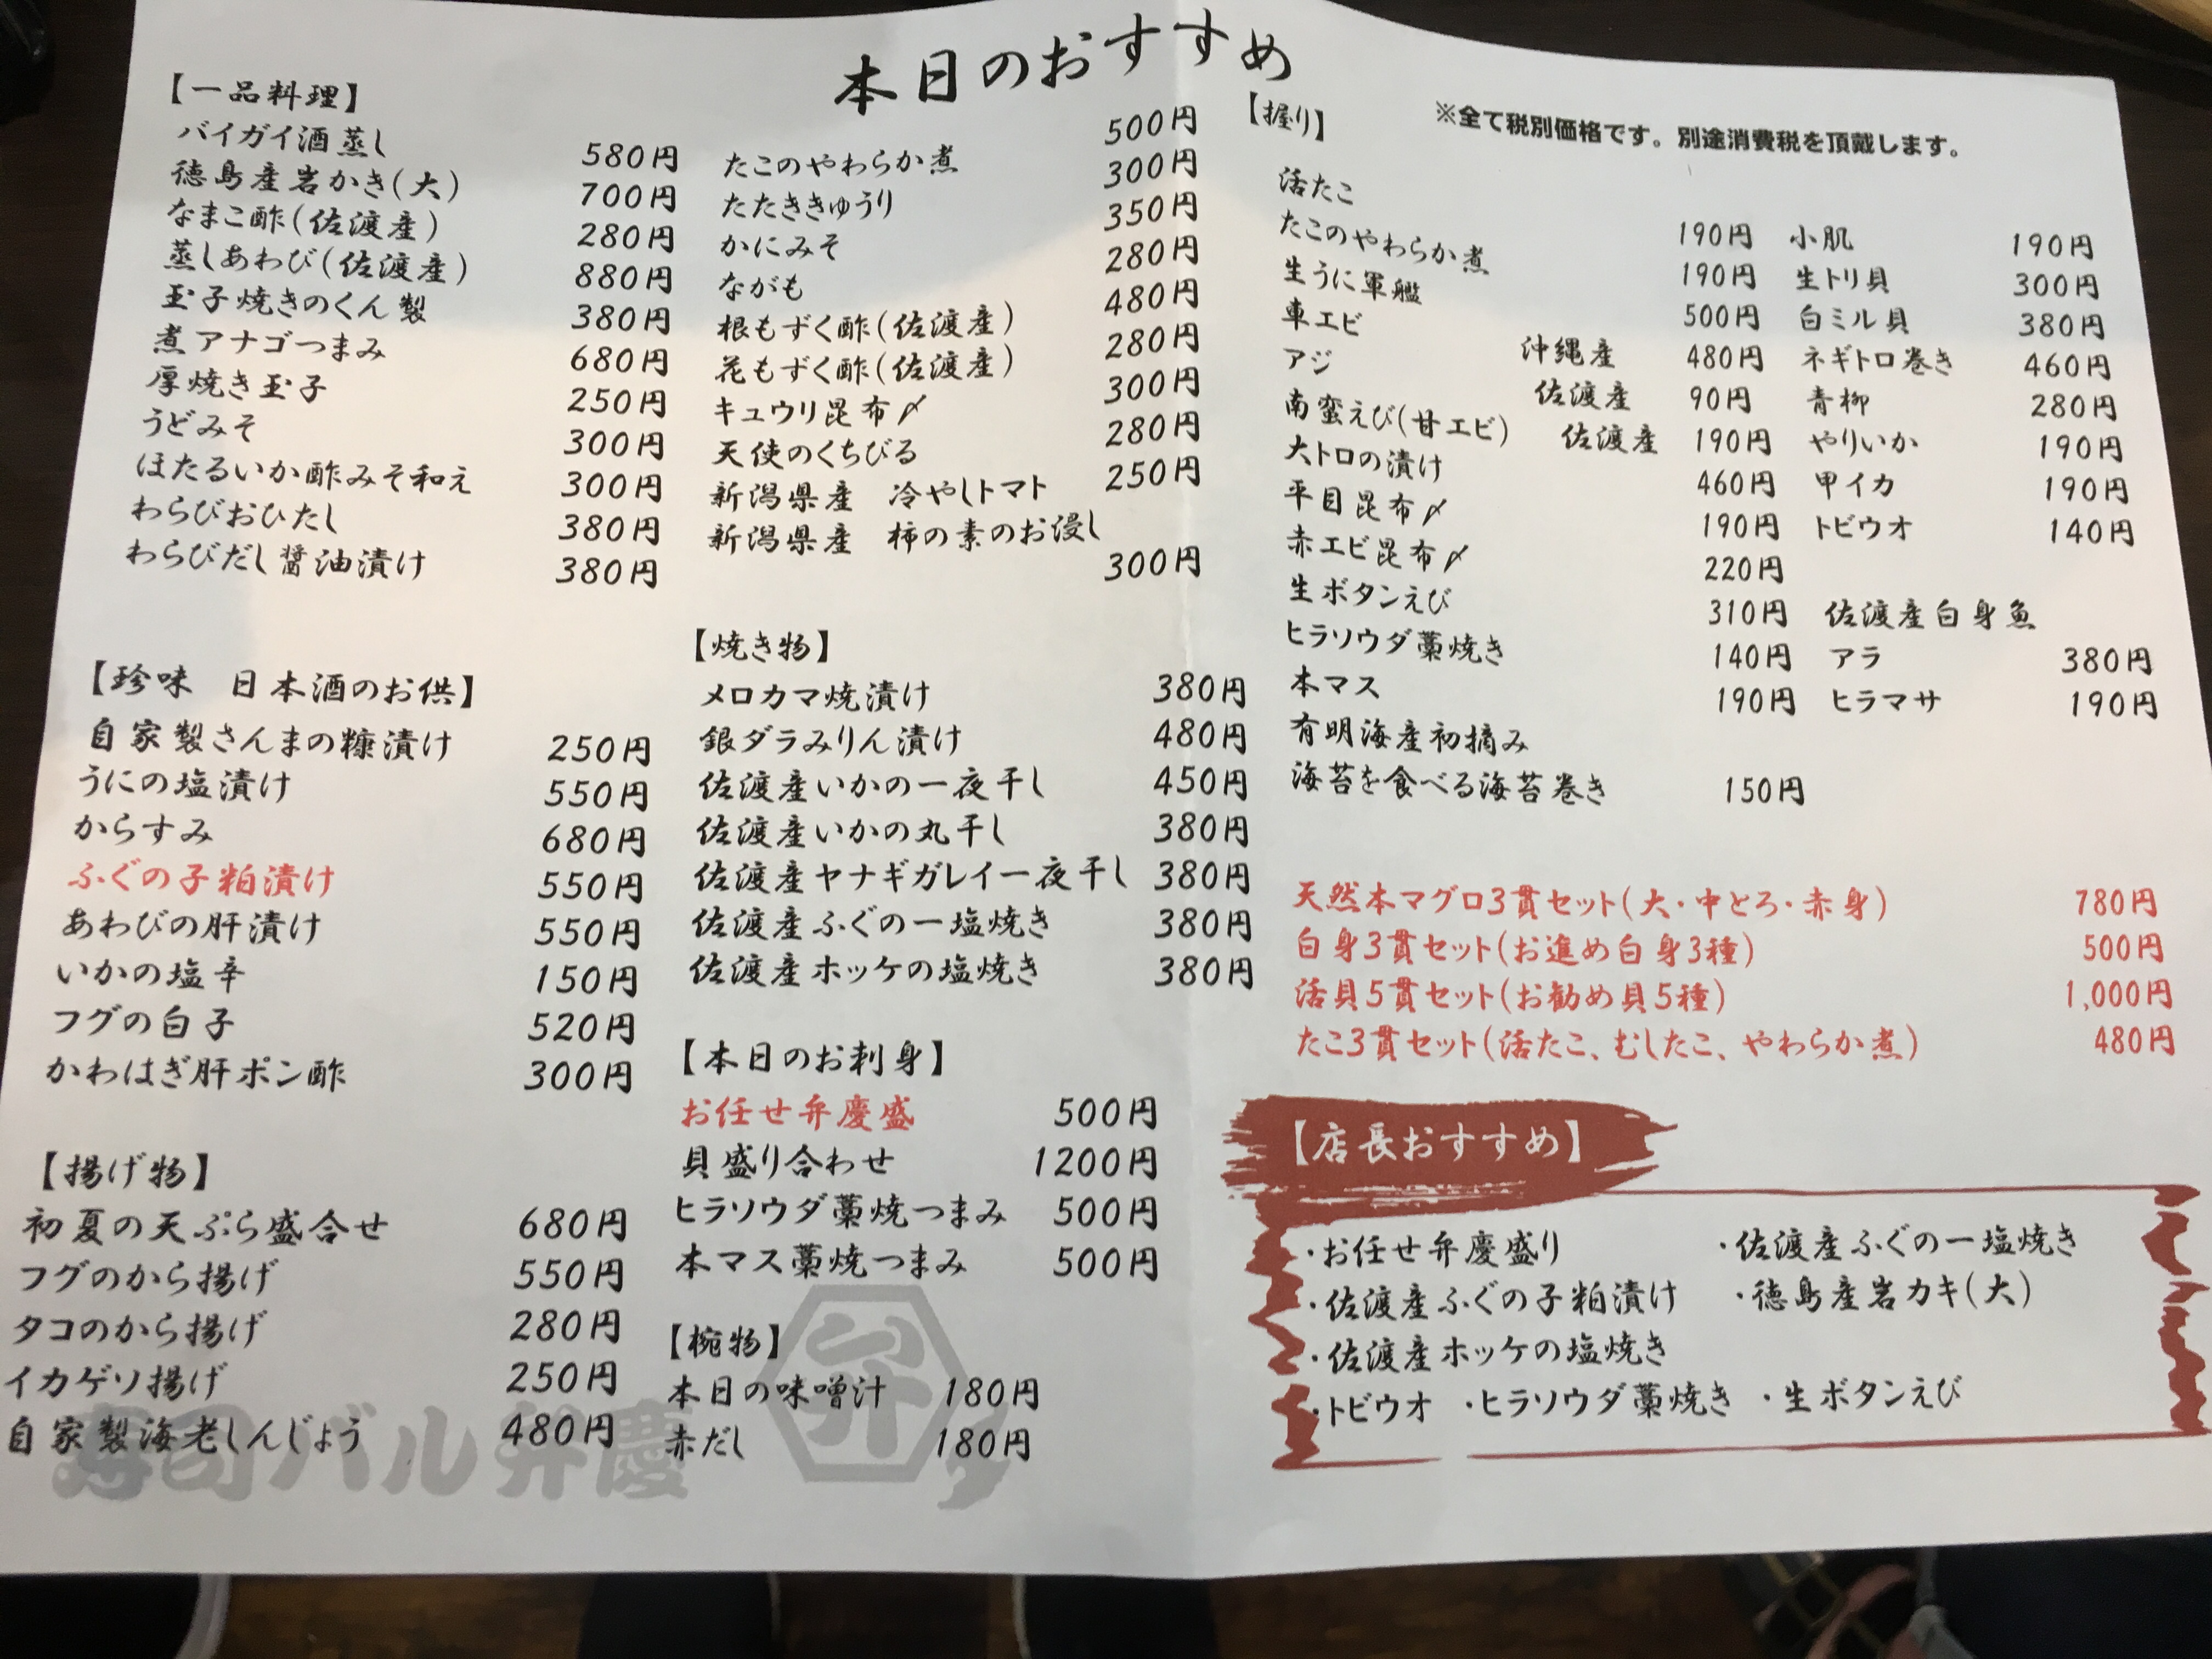 本日のおすすめ
【一品料理】
バイガイ酒蒸し 580円
徳島産岩かき(大) 700円
なまこ酢(佐渡産) 280円
蒸しあわび(佐渡産) 880円
玉子焼きのくん製 380円
煮アナゴつまみ 680円
厚焼き玉子 250円
うどみそ 300円
ほたるいか酢みそ和え 300円
わらびおひたし 380円
わらびだし醤油漬け 380円
【珍味 日本酒のお供】
自家製さんまの糠漬け 250円
うにの塩漬け 550円
からすみ 680円
ふぐの子粕漬け 550円
あわびの肝漬け 550円
いかの塩辛 150円
フグの白子 520円
かわはぎ肝ポン酢 300円
【揚げ物】
初夏の天ぷら盛合せ 680円
フグのから揚げ 550円
タコのから揚げ 280円
イカゲソ揚げ 250円
自家製海老しんじょう 480円
寿司バル弁慶
たこのやわらか煮 500円
たたききゅうり 300円
かにみそ 350円
ながも 280円
根もずく酢(佐渡産) 480円
花もずく酢(佐渡産) 280円
キュウリ昆布〆 300円
天使のくちびる 280円
新潟県産 冷やしトマト 250円
新潟県産 柿の素のお浸し 300円
【焼き物】
メロカマ焼漬け 380円
銀ダラみりん漬け 480円
佐渡産いかの一夜干し 450円
佐渡産いかの丸干し 380円
佐渡産ヤナギガレイ一夜干し 380円
佐渡産ふぐの一塩焼き 380円
佐渡産ホッケの塩焼き 380円
【本日のお刺身】
お任せ弁慶盛 500円
貝盛り合わせ 1200円
ヒラソウダ藁焼つまみ 500円
本マス藁焼つまみ 500円
【椀物】
本日の味噌汁 180円
赤だし 180円
弁
【握り】
※全て税別価格です。別途消費税を頂戴します。
活たこ 190円
たこのやわらか煮 190円
生うに軍艦 500円
車エビ 沖縄産 480円
アジ 佐渡産 90円
南蛮えび(甘エビ) 佐渡産 190円
大トロの漬け 460円
平目昆布〆 190円
赤エビ昆布〆 220円
生ボタンえび 310円
ヒラソウダ藁焼き 140円
本マス 190円
有明海産初摘み
海苔を食べる海苔巻き 150円
小肌 190円
生トリ貝 300円
白ミル貝 380円
ネギトロ巻き 460円
青柳 280円
やりいか 190円
甲イカ 190円
トビウオ 140円
佐渡産白身魚
アラ 380円
ヒラマサ 190円
天然本マグロ3貫セット(大・中とろ・赤身) 780円
白身3貫セット(お進め白身3種) 500円
活貝5貫セット(お勧め貝5種) 1,000円
たこ3貫セット(活たこ、むしたこ、やわらか煮) 480円
【店長おすすめ】
・お任せ弁慶盛り ・佐渡産ふぐの一塩焼き
・佐渡産ふぐの子粕漬け ・徳島産岩カキ(大)
・佐渡産ホッケの塩焼き
・トビウオ ・ヒラソウダ藁焼き ・生ボタンえび